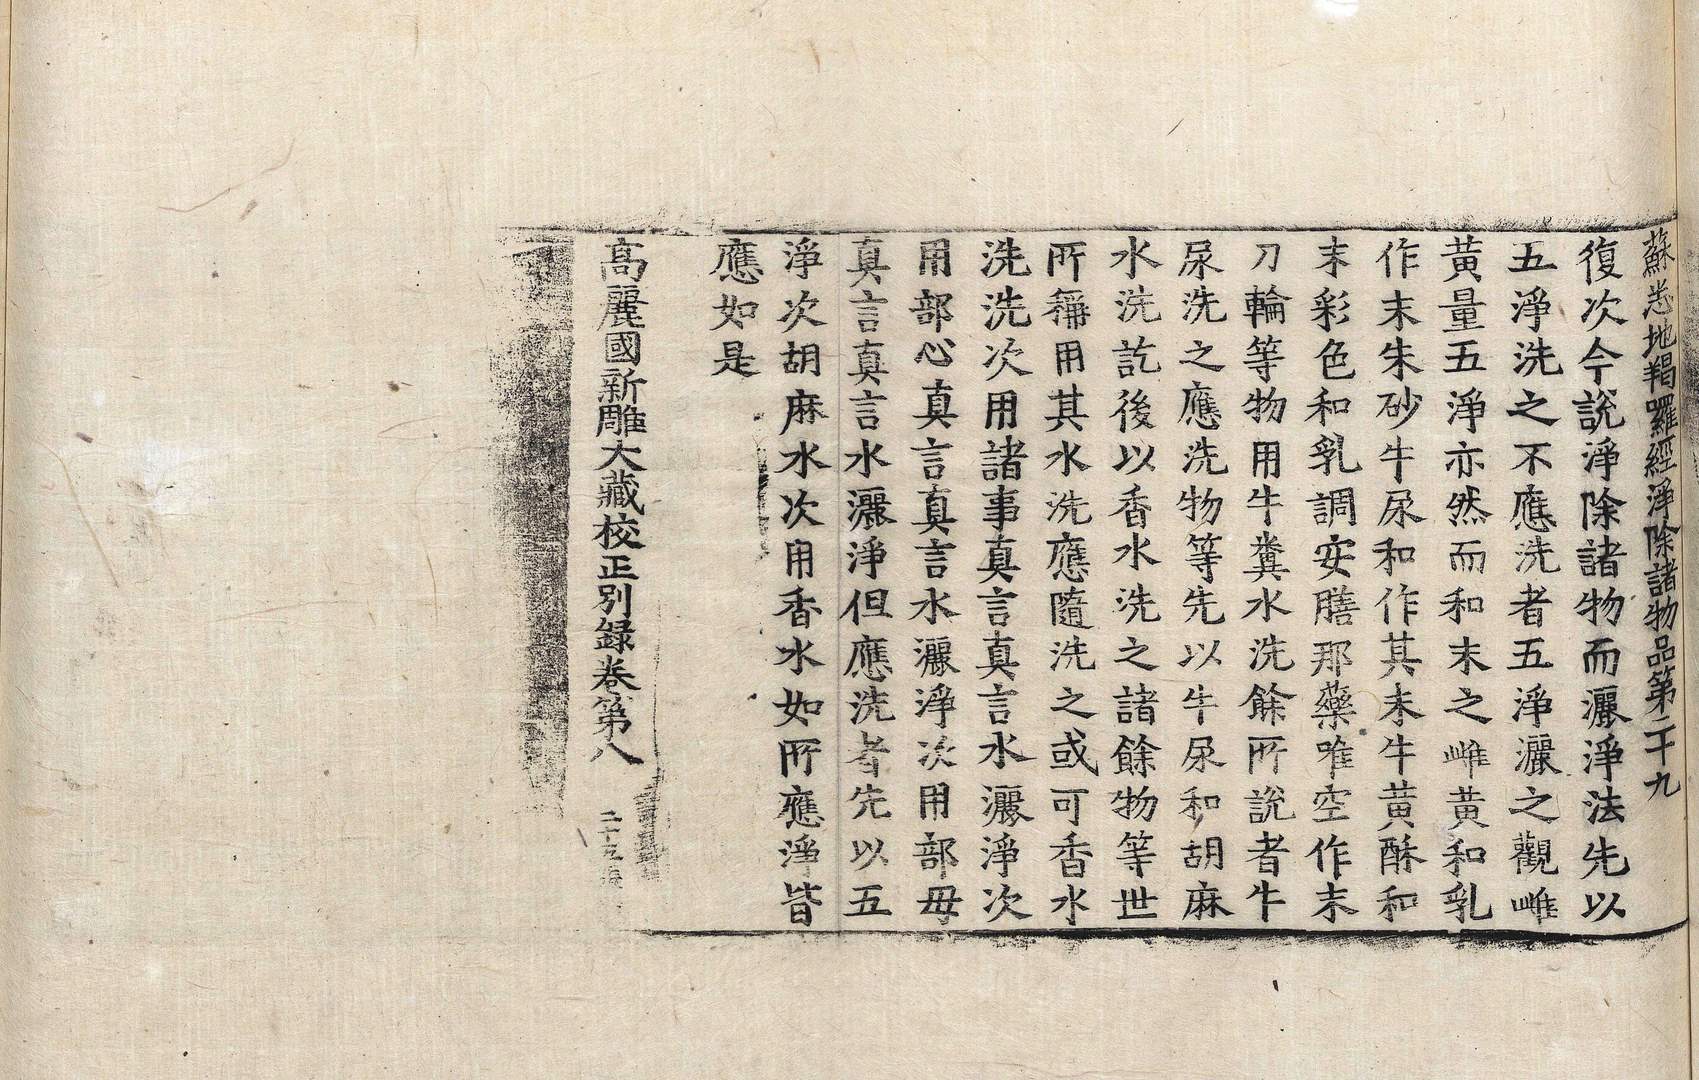 蘇悉地羯囉經淨除諸物品第二十九
復次今說淨除諸物而灑淨法先以
五淨洗之不應洗者五淨灑之觀雌
黃量五淨亦然而和末之雌黃和乳
作末朱砂牛尿和作其末牛黃酥和
末彩色和乳調安膳那藥唯空作末
刀輪等物用牛糞水洗餘所說者牛
尿洗之應洗物等先以牛尿和胡麻
水洗訖後以香水洗之諸餘物等世
所稱用其水洗應隨洗之或可香水
洗洗次用諸事真言真言水灑淨次
用部心真言真言水灑淨次用部母
真言真言水灑淨但應洗者先以五
淨次胡麻水次用香水如所應淨皆
應如是
高麗國新雕大藏校正別録卷第八
二十五張